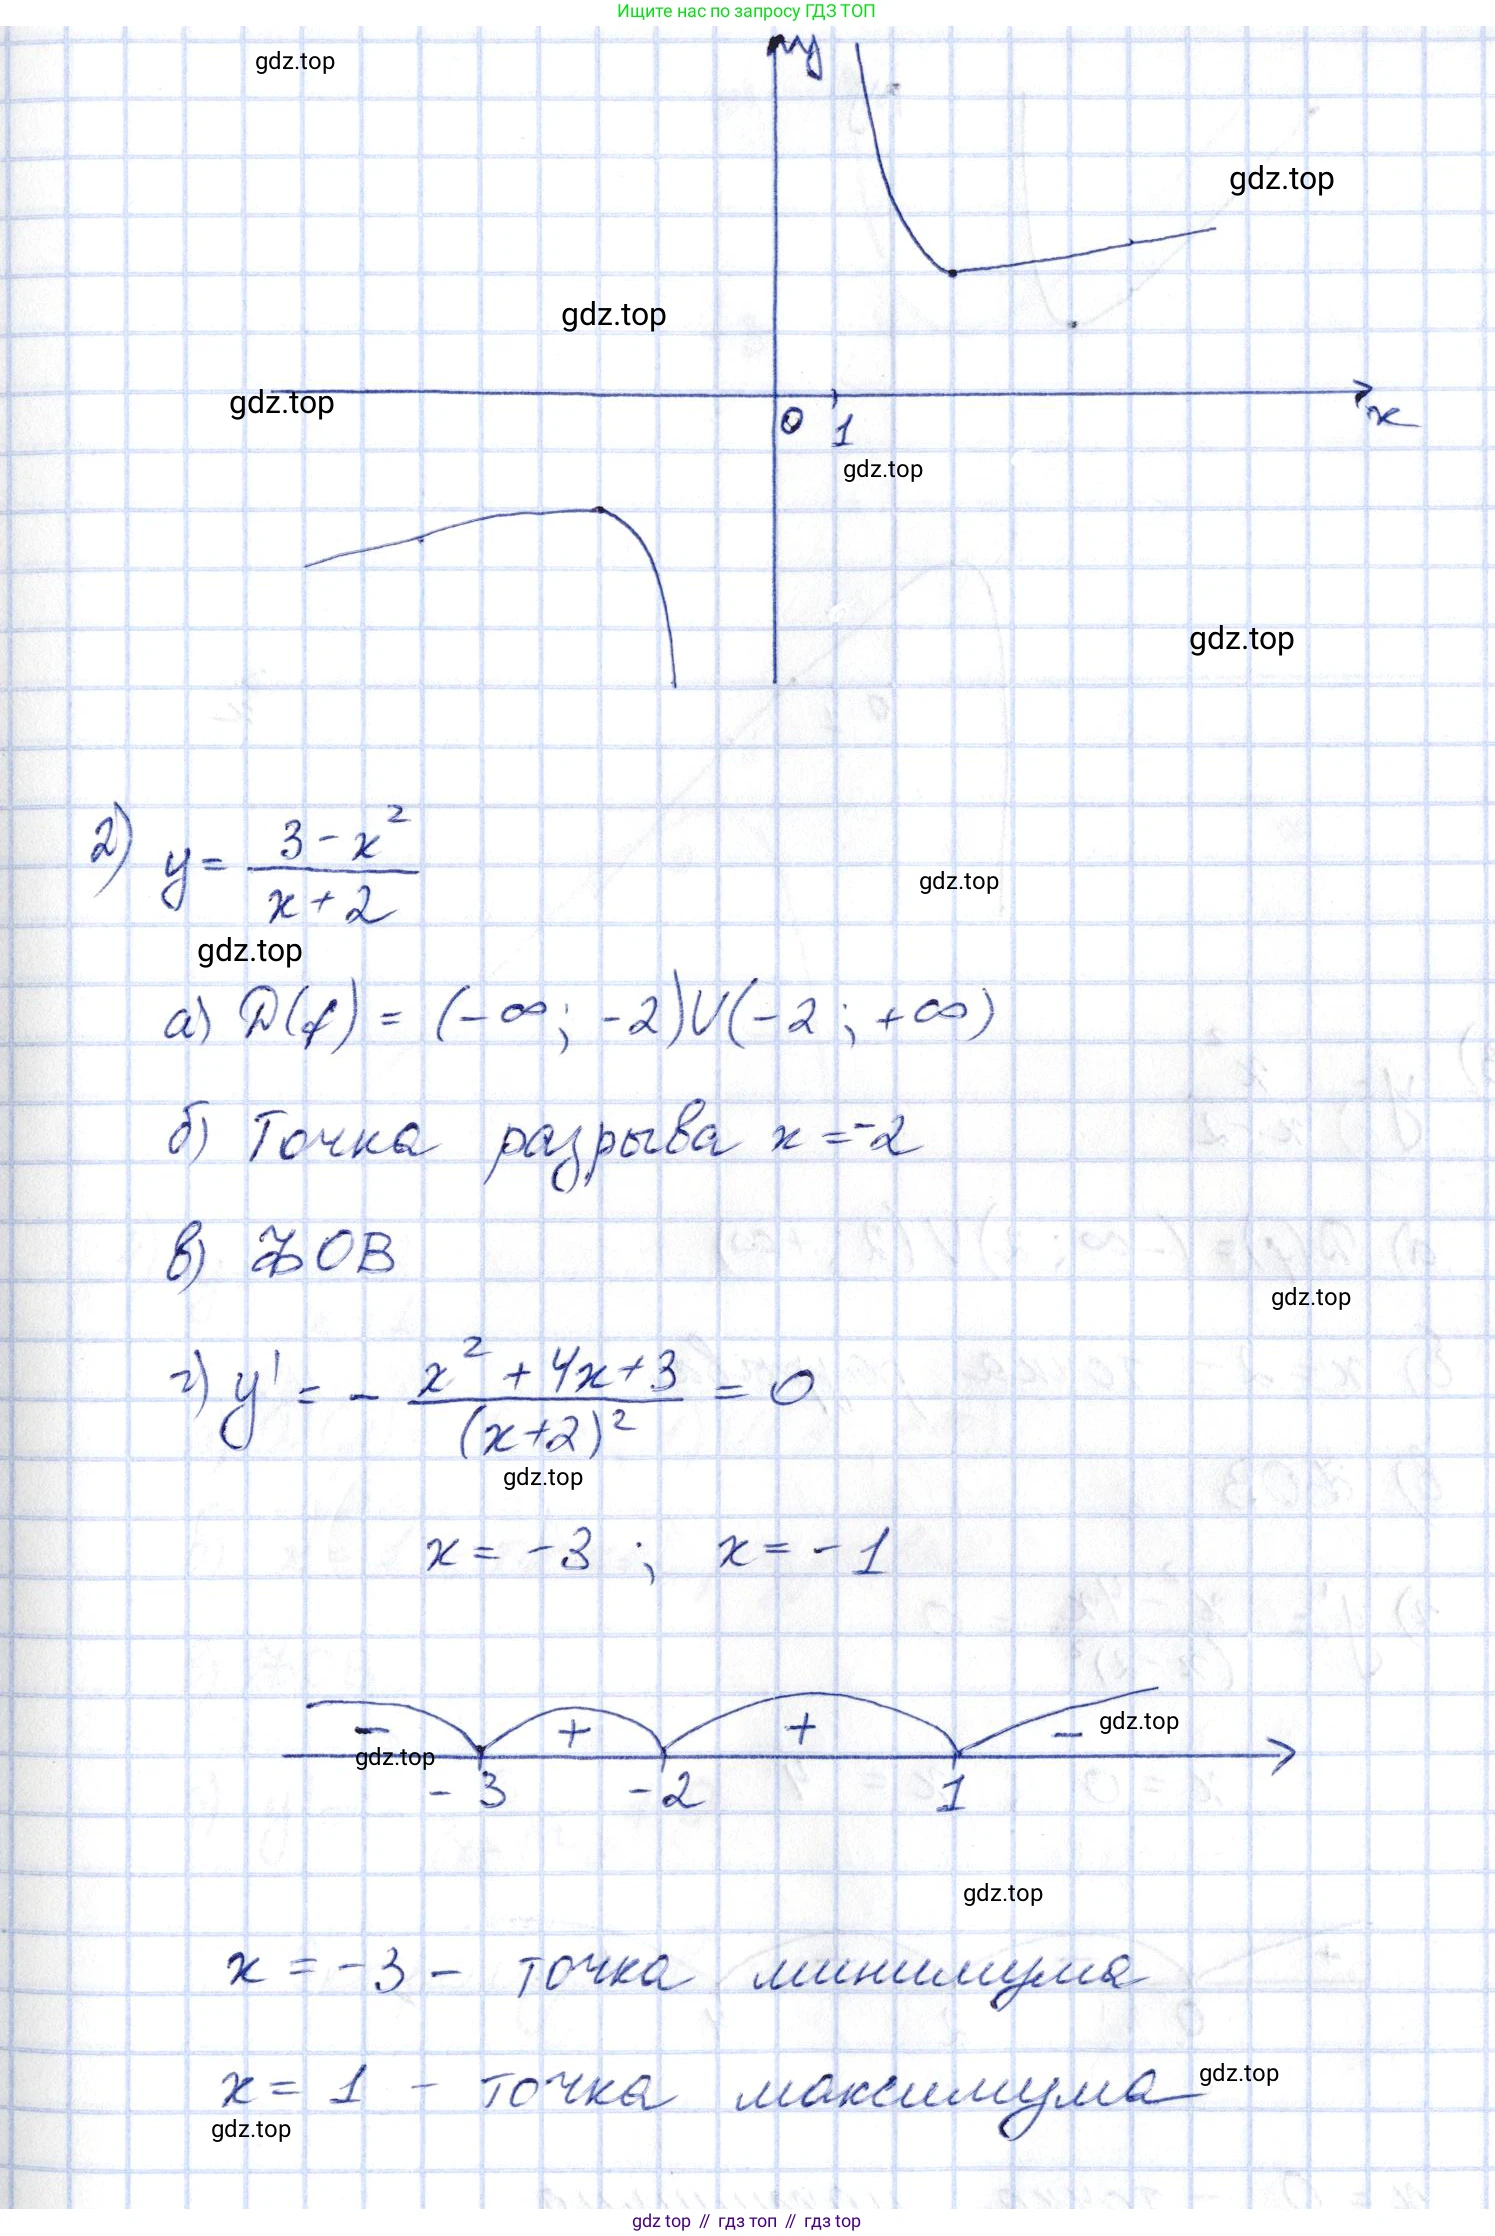 Ищите нас по запросу ГДЗ ТОП
y
gdz.top
gdz.top
gdz.top
gdz.top
0 1 x
gdz.top
gdz.top
2) y = (3 - x²)/(x + 2)
gdz.top
gdz.top
а) D(f) = (-∞; -2)U(-2; +∞)
б) Точка разрыва x = -2
в) ФОВ
gdz.top
г) y' = - (x² + 4x + 3)/(x+2)² = 0
gdz.top
x = -3 ; x = -1
- + + -
gdz.top
gdz.top
-3 -2 1
gdz.top
x = -3 - точка минимума
x = 1 - точка максимума
gdz.top
gdz.top
gdz.top // гдз топ // гдз top